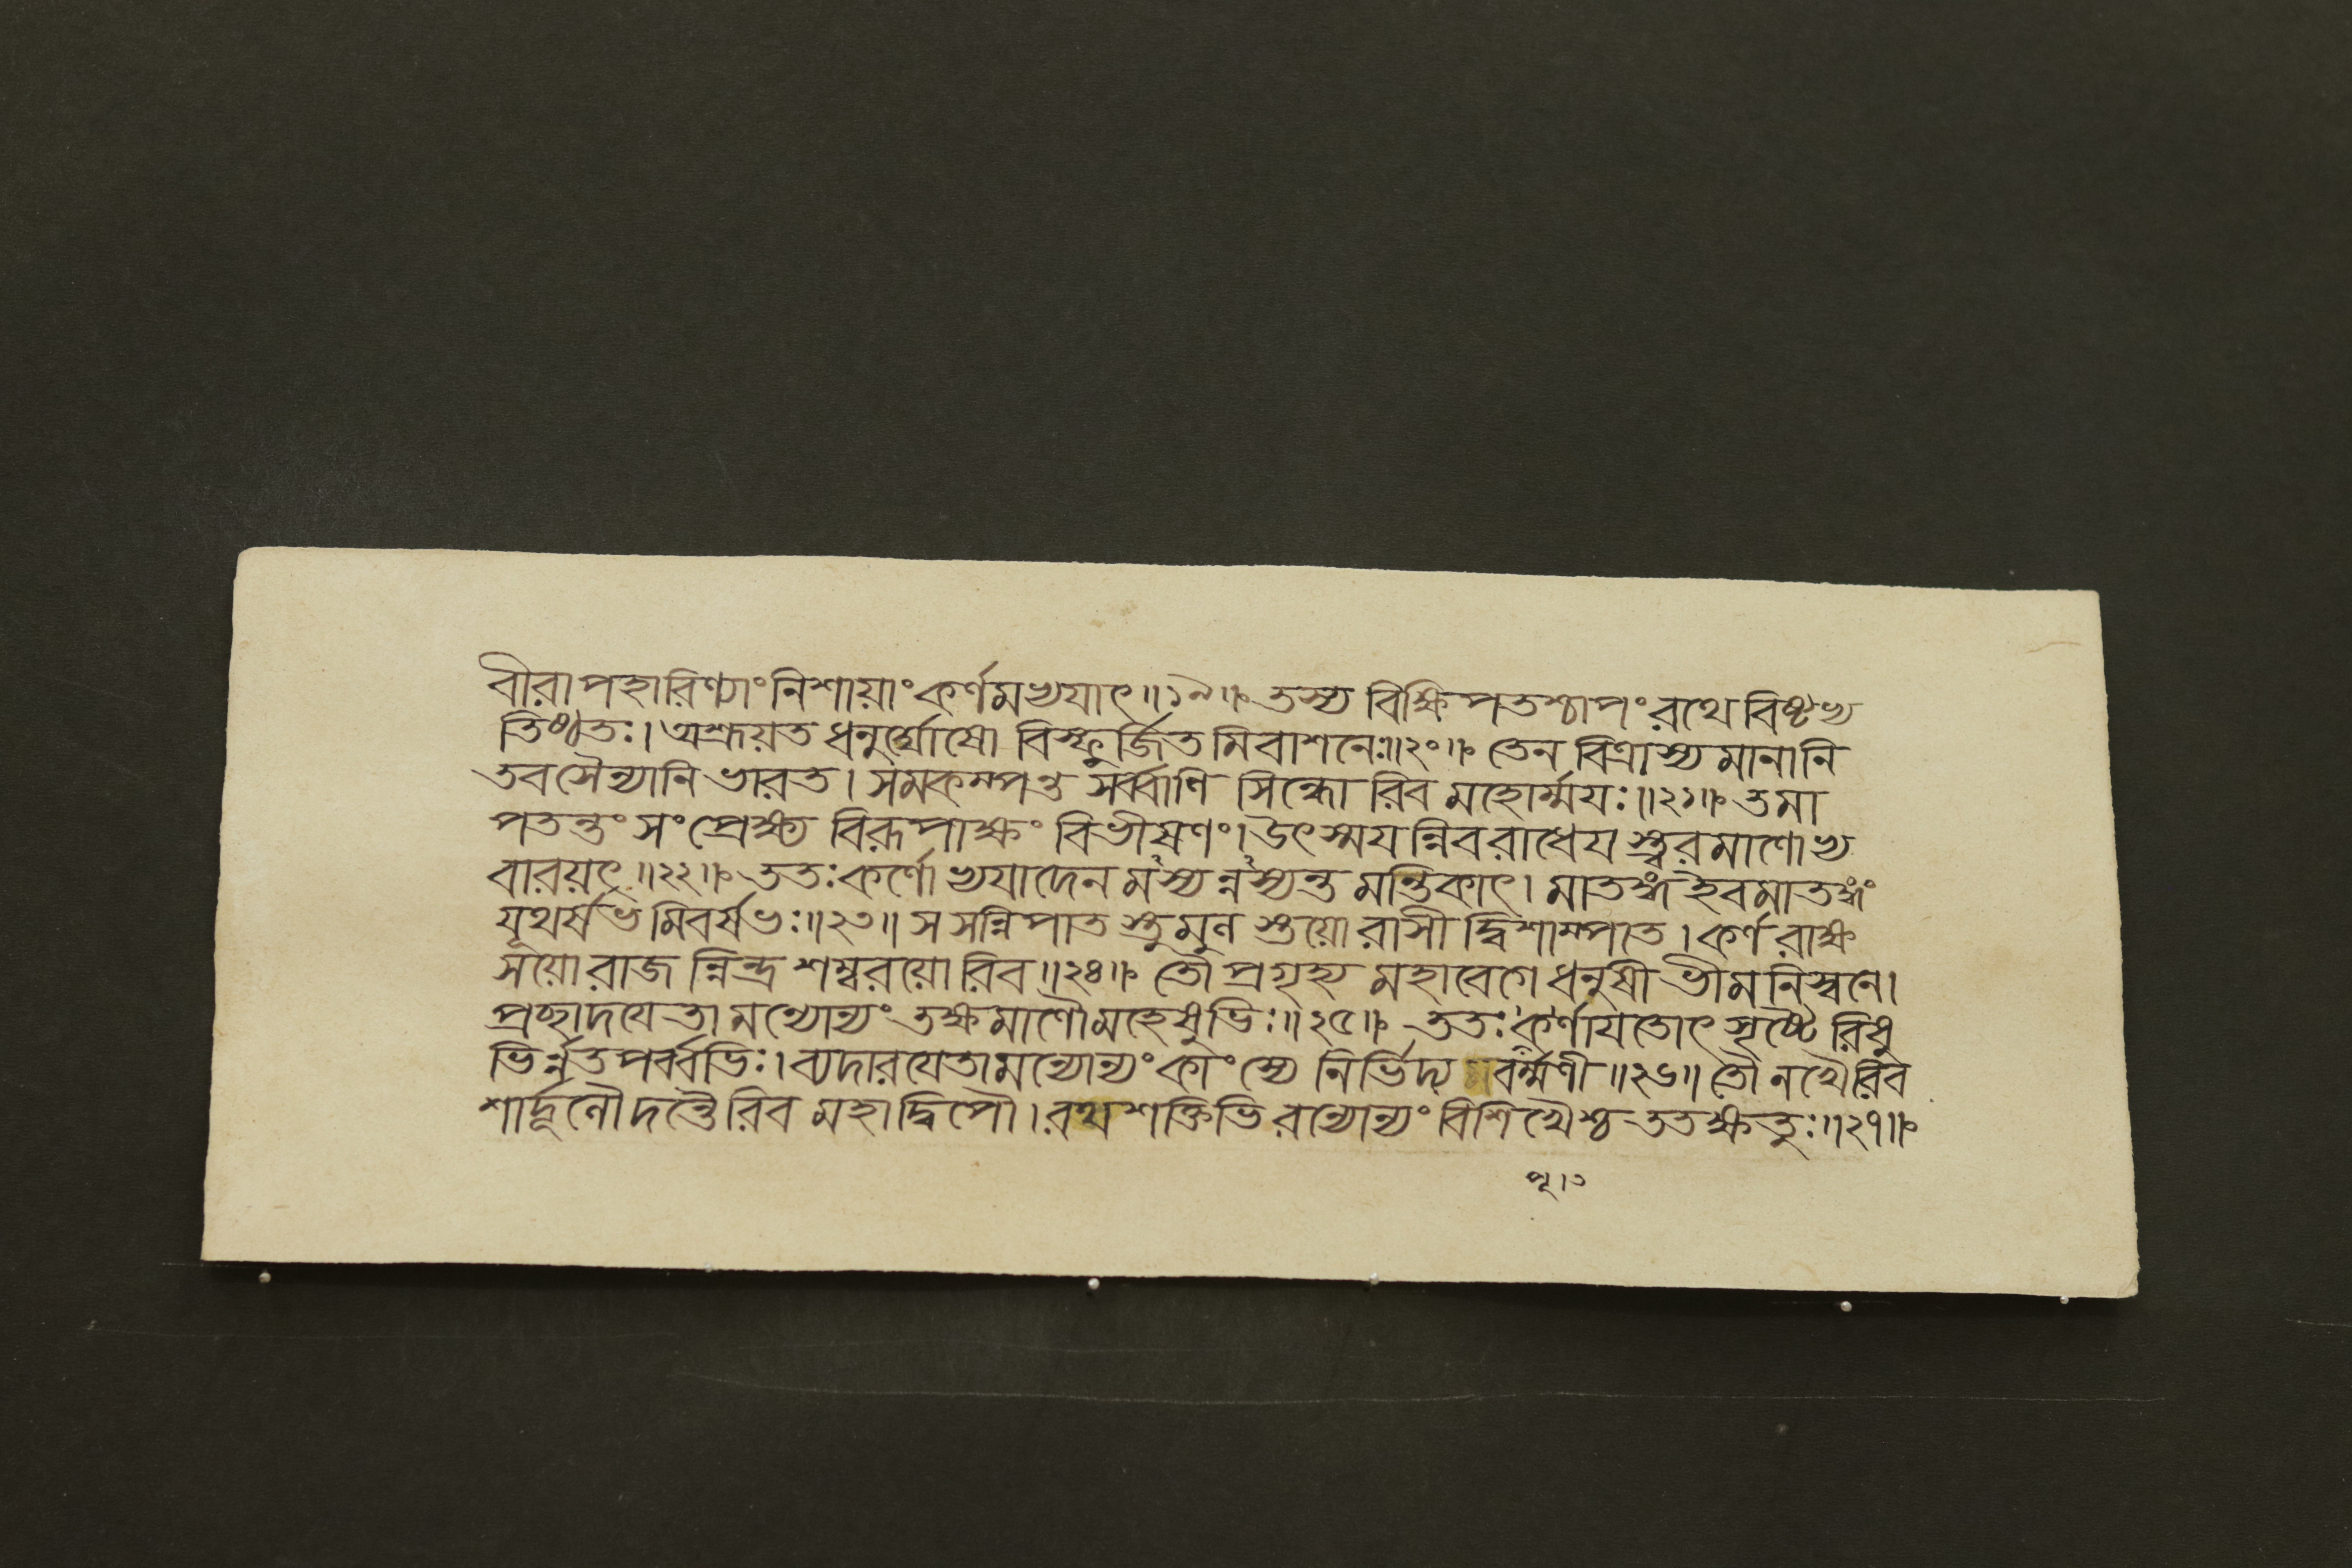 বীরাপহারিণ্যাং নিশায়াং কর্ণমভ্যযাৎ॥১৯॥ তস্য বিক্ষিপতশ্চাপং রথে বিষ্টভ্য
তিষ্ঠতঃ। অশ্রূয়ত ধনুর্ঘোষো বিস্ফূর্জিতমিবাশনেঃ॥২০॥ তেন বিত্রাস্যমানানি
তব সৈন্যানি ভারত। সমকম্পন্ত সর্ব্বাণি সিন্ধোরিব মহোর্ম্ময়ঃ॥২১॥ তমা
পতন্তং সংপ্রেক্ষ্য বিরূপাক্ষং বিভীষণং। উৎস্ময়ন্নিব রাধেয়স্ত্বরমাণোভ্য
বারয়ৎ॥২২॥ ততঃ কর্ণোভ্যযাদেনমস্যন্নস্যন্তমন্তিকাৎ। মাতঙ্গং ইব মাতঙ্গং
যূথর্ষভমিবর্ষভঃ॥২৩॥ স সন্নিপাতস্তুমুলস্তয়োরাসীদ্বিশাম্পতে। কর্ণরাক্ষ
সয়োরাজন্নিন্দ্রশম্বরয়োরিব॥২৪॥ তৌ প্রগৃহ্য মহাবেগে ধনুষী ভীমনিস্বনে।
প্রচ্ছাদয়েতামন্যোন্যং তক্ষমাণৌ মহেষুভিঃ॥২৫॥ ততঃ কর্ণায়তোৎসৃষ্টৈরিষু
ভির্ন্নতপর্ব্বভিঃ। ব্যদারয়েতামন্যোন্যং কাংস্যে নির্ভিদ্য বর্ম্মণী॥২৬॥ তৌ নখৈরিব
শার্দ্দূলৌ দন্তৈরিব মহাদ্বিপৌ। রথশক্তিভিরন্যোন্যং বিশিখৈশ্চ ততক্ষতুঃ॥২৭॥